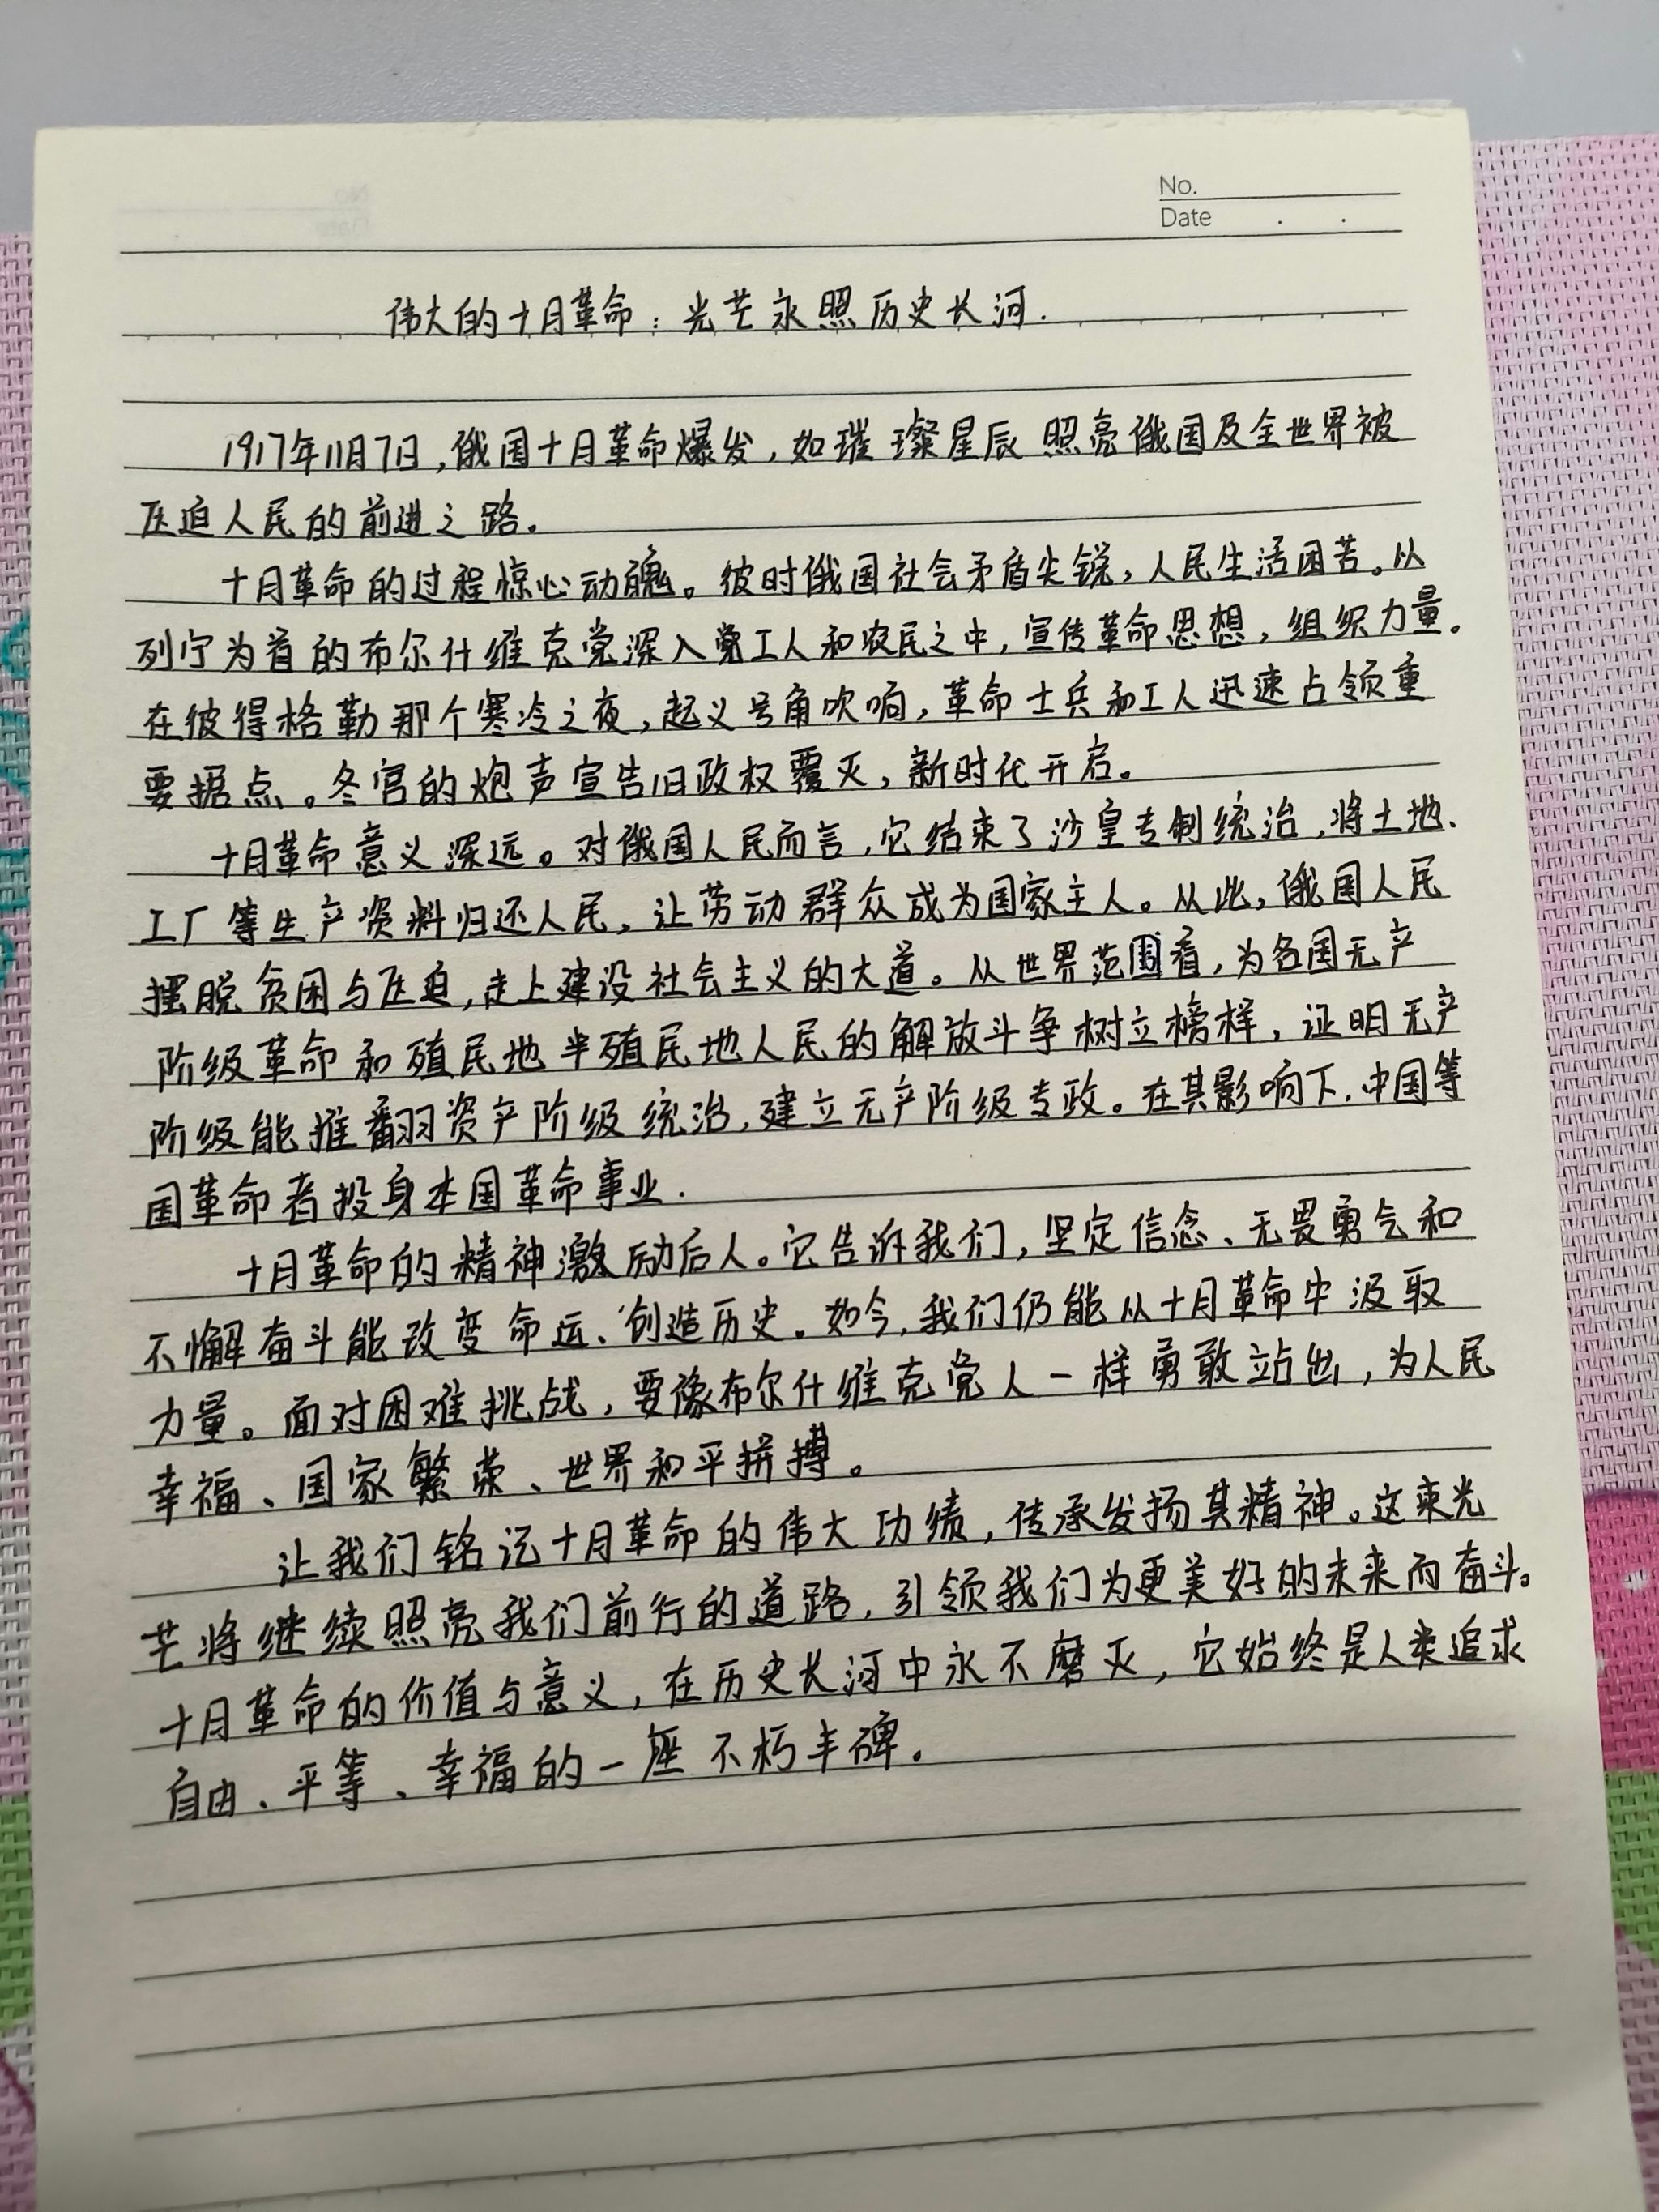 No.
Date . .
伟大的十月革命：光芒永照历史长河.
1917年11月7日,俄国十月革命爆发,如璀璨星辰照亮俄国及全世界被
压迫人民的前进之路。
十月革命的过程惊心动魄。彼时俄国社会矛盾尖锐,人民生活困苦。以
列宁为首的布尔什维克党深入工人和农民之中,宣传革命思想,组织力量。
在彼得格勒那个寒冷之夜,起义号角吹响,革命士兵和工人迅速占领重
要据点。冬宫的炮声宣告旧政权覆灭,新时代开启。
十月革命意义深远。对俄国人民而言,它结束了沙皇专制统治,将土地、
工厂等生产资料归还人民,让劳动群众成为国家主人。从此,俄国人民
摆脱贫困与压迫,走上建设社会主义的大道。从世界范围看,为各国无产
阶级革命和殖民地半殖民地人民的解放斗争树立榜样,证明无产
阶级能推翻资产阶级统治,建立无产阶级专政。在其影响下,中国等
国革命者投身本国革命事业.
十月革命的精神激励后人。它告诉我们,坚定信念、无畏勇气和
不懈奋斗能改变命运、创造历史。如今,我们仍能从十月革命中汲取
力量。面对困难挑战,要像布尔什维克党人一样勇敢站出,为人民
幸福、国家繁荣、世界和平拼搏。
让我们铭记十月革命的伟大功绩,传承发扬其精神。这束光
芒将继续照亮我们前行的道路,引领我们为更美好的未来而奋斗。
十月革命的价值与意义,在历史长河中永不磨灭,它始终是人类追求
自由、平等、幸福的一座不朽丰碑。